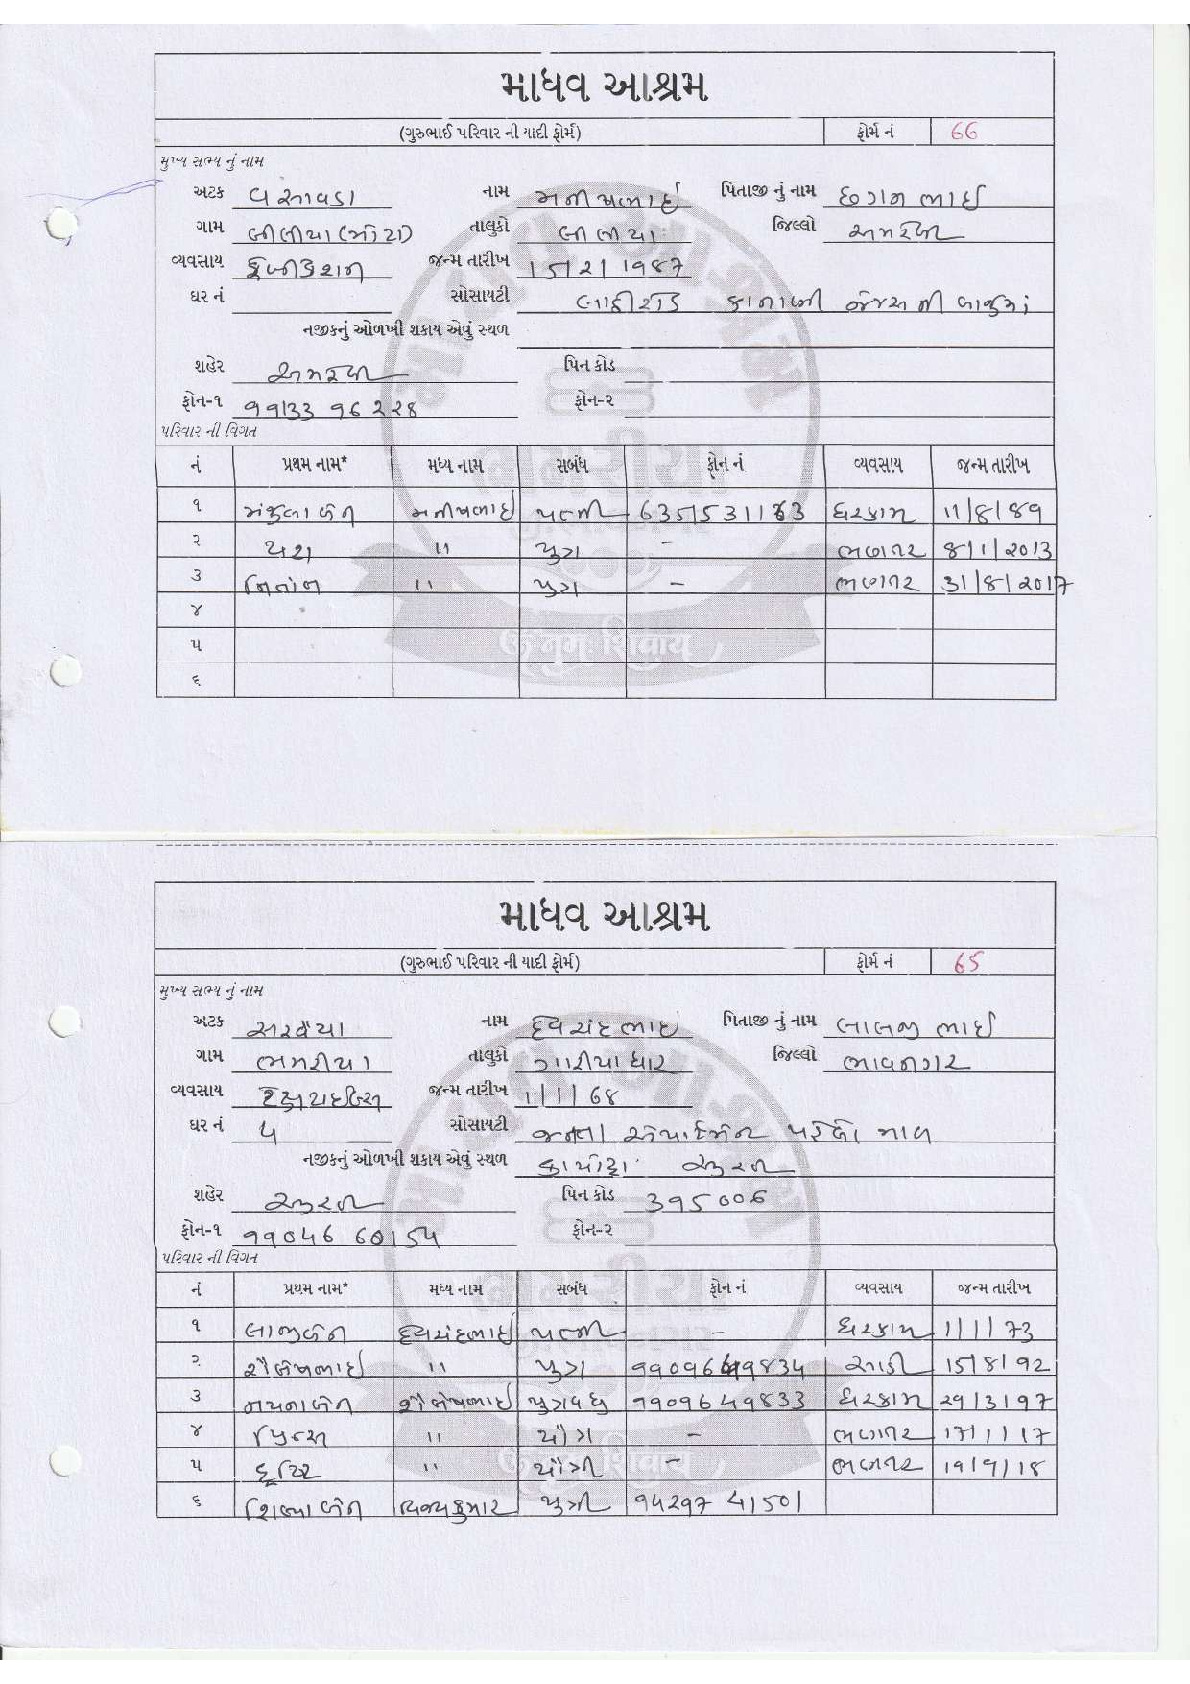 માધવ આશ્રમ
(ગુરુભાઈ પરિવાર ની યાદી ફોર્મ) ફોર્મ નં 66
મુખ્ય સભ્ય નું નામ
અટક વસાવડા નામ મનીષભાઈ પિતાજી નું નામ છગનભાઈ
ગામ લીલીયા (મોટા) તાલુકો લીલીયા જિલ્લો અમરેલી
વ્યવસાય ફેબ્રીકેશન જન્મ તારીખ 15/2/1987
ઘર નં સોસાયટી લાઠીરોડ કાનાજી ની બાજુમાં
નજીકનું ઓળખી શકાય એવું સ્થળ
શહેર અમરેલી પિન કોડ
ફોન-૧ ૨
પરિવાર ની વિગત
નં પ્રથમ નામ* મધ્ય નામ સબંધ ફોન નં વ્યવસાય જન્મ તારીખ
૧ મંજુલાબેન મનીષભાઈ પત્ની ઘરકામ ૧૧/8/89
૨ યશ " પુત્ર - ભણતર 8/1/2013
૩ " પુત્ર - ભણતર 31/8/2017
૪
૫
૬
ઉં નમઃ શિવાય
માધવ આશ્રમ
(ગુરુભાઈ પરિવાર ની યાદી ફોર્મ) ફોર્મ નં 65
મુખ્ય સભ્ય નું નામ
અટક સરવૈયા નામ દેવચંદભાઈ પિતાજી નું નામ લાલજીભાઈ
ગામ ભમરીયા તાલુકો ગારીયાધાર જિલ્લો ભાવનગર
વ્યવસાય જન્મ તારીખ 1/1/68
ઘર નં ૫ સોસાયટી જનતા એપાર્ટમેન્ટ પહેલો માળ
નજીકનું ઓળખી શકાય એવું સ્થળ કાપોદ્રા સુરત
શહેર સુરત પિન કોડ 395006
ફોન-૧ 99046 60154 ફોન-૨
પરિવાર ની વિગત
નં પ્રથમ નામ* મધ્ય નામ સબંધ ફોન નં વ્યવસાય જન્મ તારીખ
૧ લાભુબેન દેવચંદભાઈ પત્ની - ઘરકામ 1/1/73
૨ શૈલેષભાઈ " પુત્ર સાડી 15/8/92
૩ નયનાબેન શૈલેષભાઈ પુત્રવધુ 9909649833 ઘરકામ 29/3/97
૪ પ્રિન્સ " પૌત્ર - ભણતર 17/1/17
૫ " પૌત્રી - ભણતર 19/9/18
૬ શિલ્પાબેન પુત્રી 94297 41501
ઉં નમઃ શિવાય